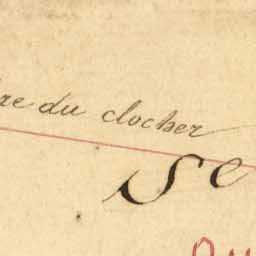 re du clocher
Se